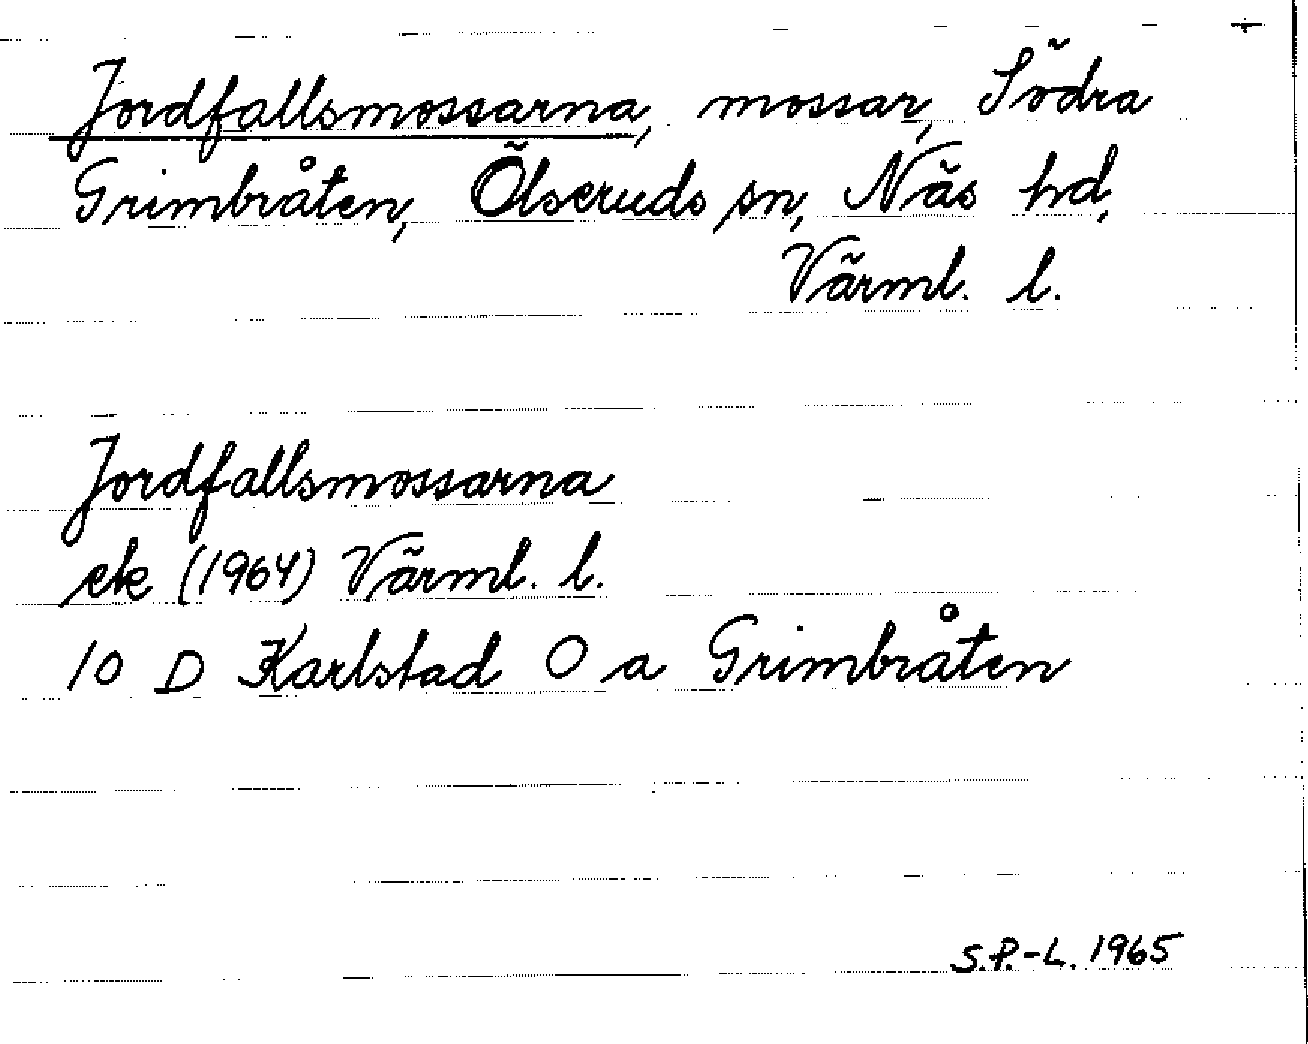 Jordfallsmossarna, mossar, Södra
Grimbråten, Ölseruds sn, Näs hd,
Värml. l.
Jordfallsmossarna
ek (1964) Värml. l.
10 D Karlstad O a Grimbråten
S.P.-L. 1965